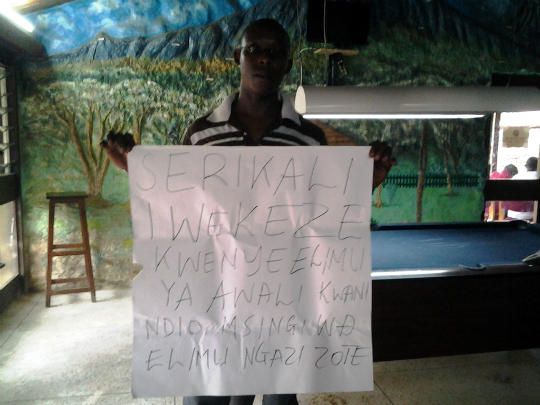 SERIKALI
IWEKEZE
KWENYE ELIMU
YA AWALI KWANI
NDIO MSINGI WA
ELIMU NGAZI ZOTE